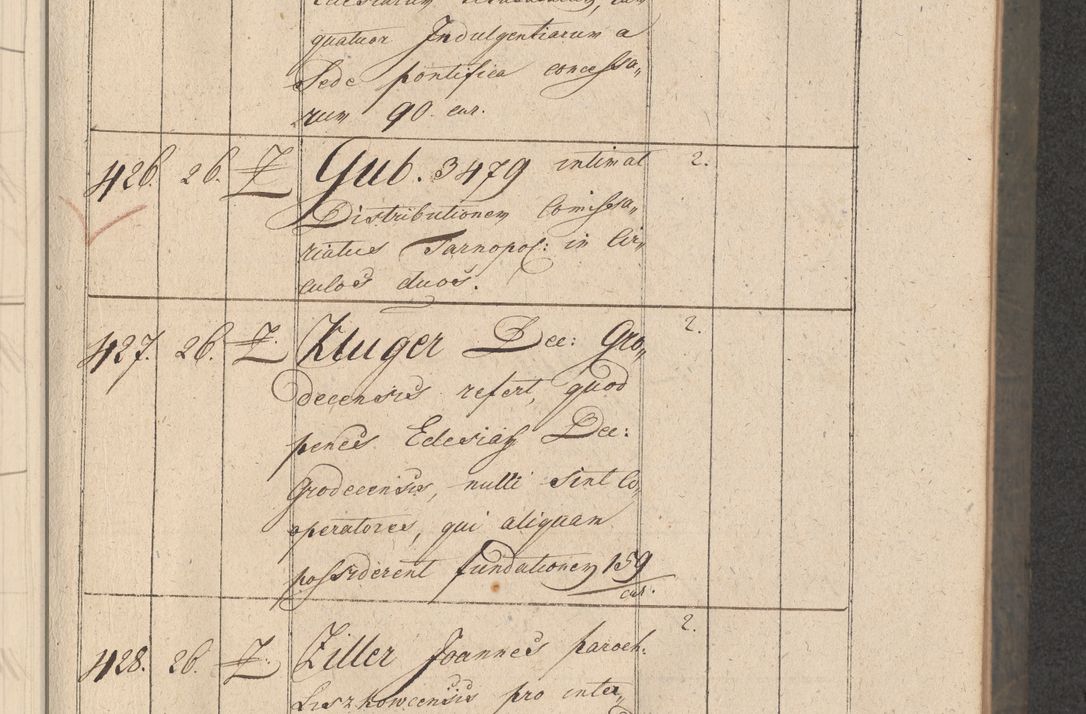 quatuor Indulgentiarum a
Sede pontifica concessa„
rum 90. cur.
426. 26. Z Gub. 3479 intimat 2.
Distributionem Comissa„
riatus Tarnopol: in Cir„
culos duos.
427. 26. Z Kluger Dec: Gro„ 2.
decensis refert, quod
penes Eclesias Dec:
Grodecensis, nulli sint Co„
operatores, qui aliquam
possiderent fundationem 159
cur.
428. 26. Z Ziller Joannes paroch. 2.
Liszkowcensis pro inter„